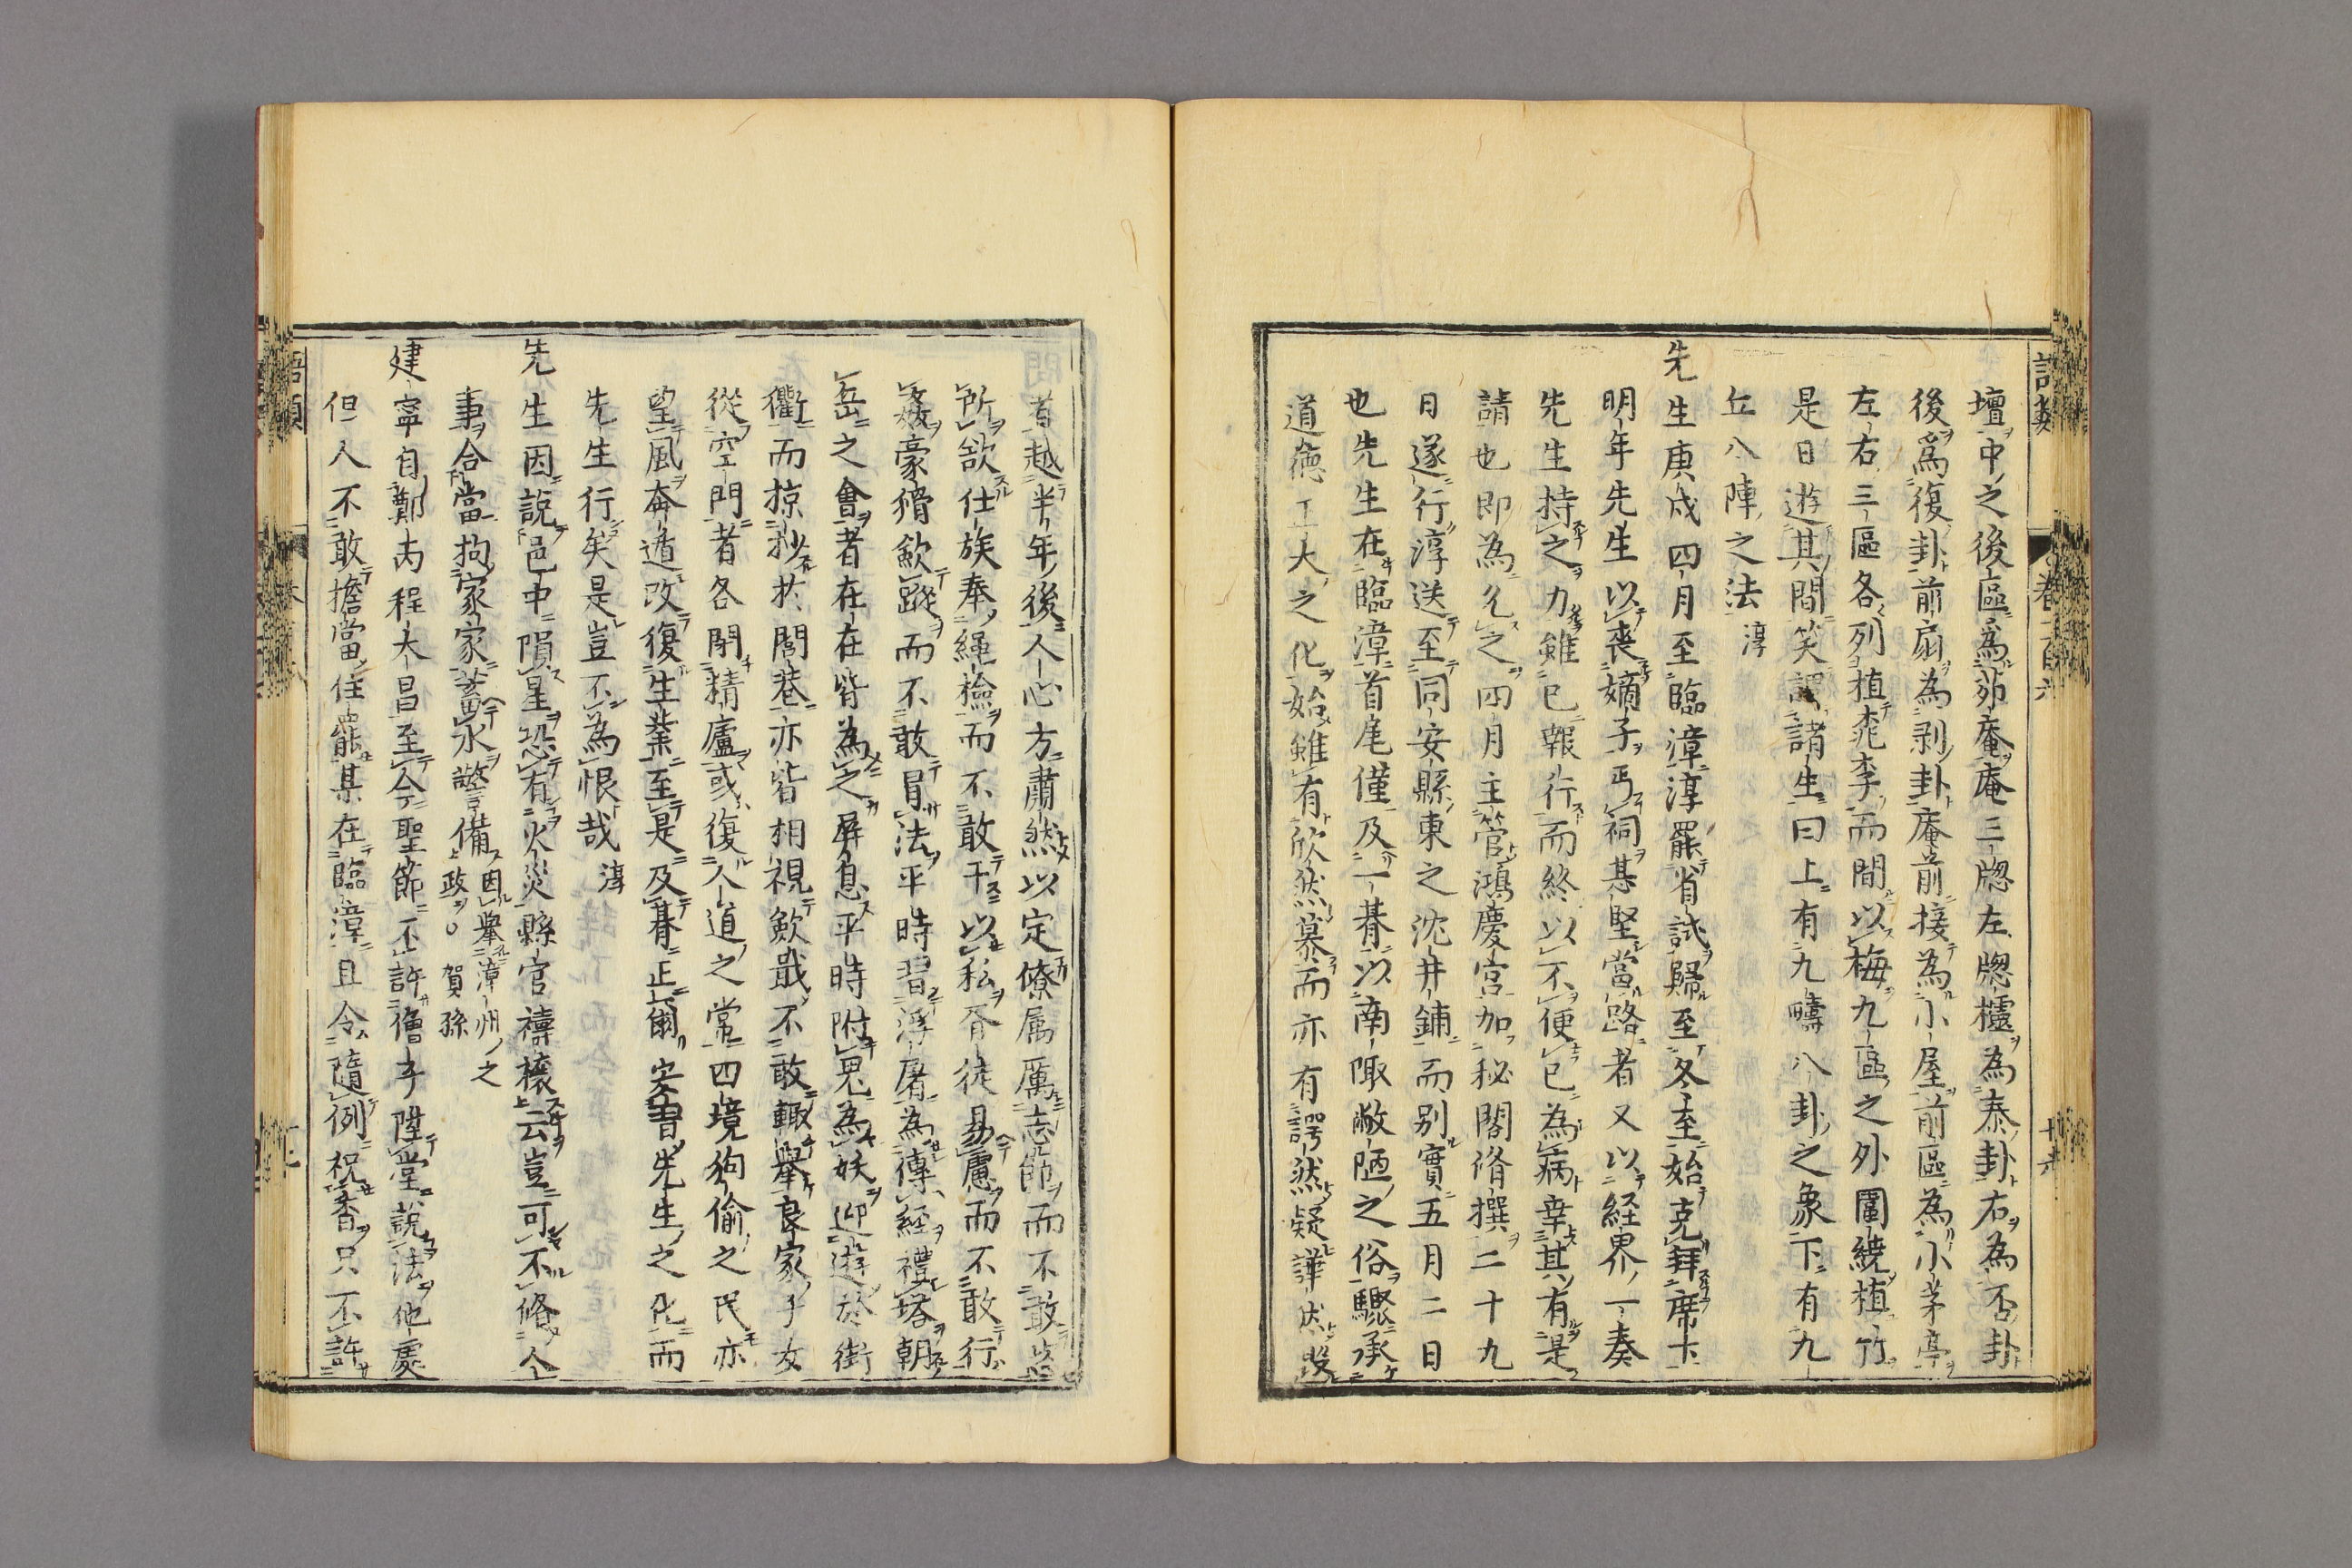 語類
卷一百六
壇中之後區爲茆庵庵三牕左牕櫺為泰卦右為否卦
後爲復卦前扇為剥卦庵前接為小屋前區為小茅亭
左右三區各列植桃李而間以梅九區之外圍繞植竹
是日遊其間笑謂諸生曰上有九疇八卦之象下有九
丘八陣之法 淳
先生庚戌四月至臨漳淳罷省試歸至冬至始克拜席下
明年先生以喪嫡子丐祠甚堅當路者又以経界一奏
先生持之力雖已報行而終以不便已為病幸其有是
請也即為允之四月主管鴻慶宮加秘閣脩撰二十九
日遂行淳送至同安縣東之沈井鋪而别實五月二日
也先生在臨漳首尾僅及一朞以南陬敝陋之俗驟承
道德正大之化始雖有欣然慕而亦有諤然疑譁然毀
者越半年後人心方肅然以定僚属厲志節而不敢恣
所欲仕族奉繩檢而不敢干以私胥徒易慮而不敢行
姦豪猾斂蹤而不敢冒法平時習浮屠為傳経禮塔朝
岳之會者在在皆為之屏息平時附鬼為妖迎遊於街
衢而掠抄於閭巷亦皆相視斂戢不敢輙擧良家子女
從空門者各閉精廬或復人道之常四境狗偷之民亦
望風奔遁改復生業至是及朞正爾安習先生之化而
先生行矣是豈不為恨哉 淳
先生因説邑中隕星恐有火災縣官禱禳云豈可不脩人
事合當拘家家蓄水警備 因擧漳州之
政○ 賀孫
建寧自鄭丙程大昌至今聖節不許僧子陞堂説法他處
但人不敢擔當住罷某在臨漳且令隨例祝香只不許
語類